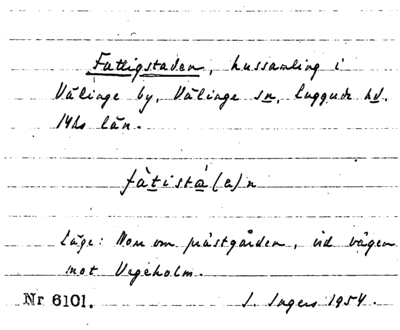 Fattigstaden, hussamling i
Välinge by, Välinge sn, Luggude hd.
Mhs län.
fàtistà(a)n
Läge: Norr om prästgården, vid vägen
mot Vegeholm.
Nr 6101. I. Ingers 1954.